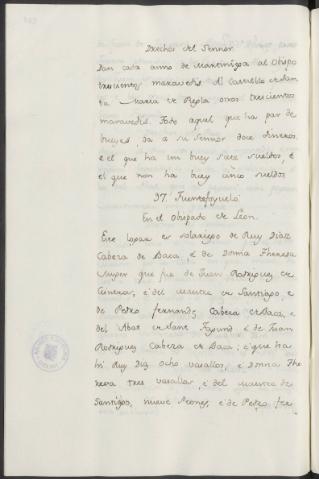 Derechos del Sennor
Dan cada anno de Martiniega al Obispo
trescientos maravedis. Al Castiello de San
ta Maria de Repla otros trescientos
maravedis. Todo aquel que ha par de
bueyes, da a su Sennor doce dineros,
e el que ha un buey seis sueldos, e
el que non ha buey cinco sueldos
37. Fuentefoyuelo
En el Obispado de Leon.
Este logar es solariego de Ruy Diaz
Cabeza de Baca é de Donna Theresa
muger que fue de Juan Rodriguez de
Cisneros, é del Maestre de Santiago, e
de Pedro Fernandez Cabeza de Baca, e
del Abat de Sant Fagund é de Juan
Rodriguez Cabeza de Baca; é que ha
hi Ruy Diaz ocho vasallos, e Donna The
resa tres vasallos, é del Maestre de
Santiago, nueve Peones, é de Pedro Fer